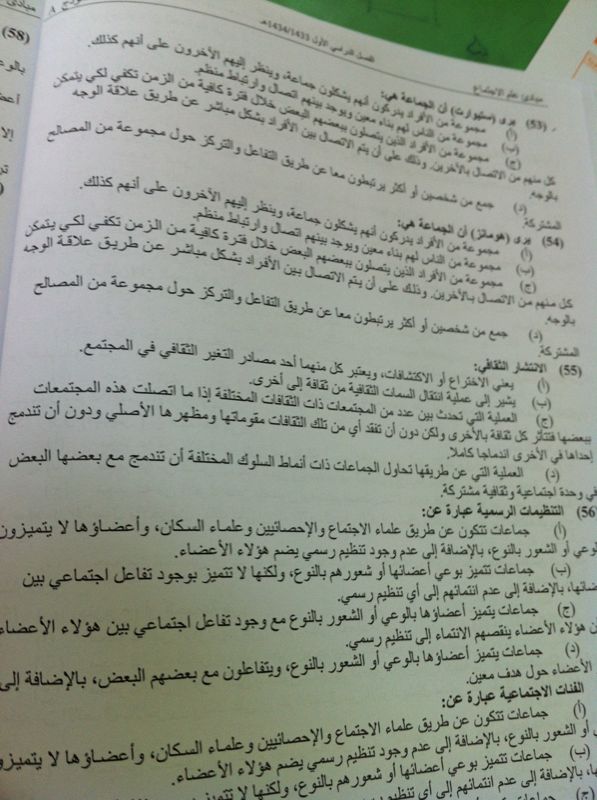 مبادئ علم الاجتماع
الفصل الدراسي الأول 1434/1433هـ
(53) يرى (ستيوارت) أن الجماعة هي:
(أ) مجموعة من الأفراد يدركون أنهم يشكلون جماعة، وينظر إليهم الآخرون على أنهم كذلك.
(ب) مجموعة من الناس لهم بناء معين ويوجد بينهم اتصال وارتباط منظم.
(ج) مجموعة من الأفراد الذين يتصلون ببعضهم البعض خلال فترة كافية من الزمن تكفي لكي يتمكن
كل منهم من الاتصال بالآخرين. وذلك على أن يتم الاتصال بين الأفراد بشكل مباشر عن طريق علاقة الوجه
بالوجه.
(د) جمع من شخصين أو أكثر يرتبطون معا عن طريق التفاعل والتركز حول مجموعة من المصالح
المشتركة.
(54) يرى (هومانز) أن الجماعة هي:
(أ) مجموعة من الأفراد يدركون أنهم يشكلون جماعة، وينظر إليهم الآخرون على أنهم كذلك.
(ب) مجموعة من الناس لهم بناء معين ويوجد بينهم اتصال وارتباط منظم.
(ج) مجموعة من الأفراد الذين يتصلون ببعضهم البعض خلال فترة كافية من الزمن تكفي لكي يتمكن
كل منهم من الاتصال بالآخرين. وذلك على أن يتم الاتصال بين الأفراد بشكل مباشر عن طريق علاقة الوجه
بالوجه.
(د) جمع من شخصين أو أكثر يرتبطون معا عن طريق التفاعل والتركز حول مجموعة من المصالح
المشتركة.
(55) الانتشار الثقافي:
(أ) يعني الاختراع أو الاكتشافات، ويعتبر كل منهما أحد مصادر التغير الثقافي في المجتمع.
(ب) يشير إلى عملية انتقال السمات الثقافية من ثقافة إلى أخرى.
(ج) العملية التي تحدث بين عدد من المجتمعات ذات الثقافات المختلفة إذا ما اتصلت هذه المجتمعات
ببعضها فتتأثر كل ثقافة بالأخرى ولكن دون أن تفقد أي من تلك الثقافات مقوماتها ومظهرها الأصلي ودون أن تندمج
إحداها في الأخرى اندماجا كاملا.
(د) العملية التي عن طريقها تحاول الجماعات ذات أنماط السلوك المختلفة أن تندمج مع بعضها البعض
في وحدة اجتماعية وثقافية مشتركة.
56) التنظيمات الرسمية عبارة عن:
(أ) جماعات تتكون عن طريق علماء الاجتماع والإحصائيين وعلماء السكان، وأعضاؤها لا يتميزون
لوعي أو الشعور بالنوع، بالإضافة إلى عدم وجود تنظيم رسمي يضم هؤلاء الأعضاء.
(ب) جماعات تتميز بوعي أعضائها أو شعورهم بالنوع، ولكنها لا تتميز بوجود تفاعل اجتماعي بين
ضائها، بالإضافة إلى عدم انتمائهم إلى أي تنظيم رسمي.
(ج) جماعات يتميز أعضاؤها بالوعي أو الشعور بالنوع مع وجود تفاعل اجتماعي بين هؤلاء الأعضاء
ن هؤلاء الأعضاء ينقصهم الانتماء إلى تنظيم رسمي.
(د) جماعات يتميز أعضاؤها بالوعي أو الشعور بالنوع، ويتفاعلون مع بعضهم البعض، بالإضافة إلى
الأعضاء حول هدف معين.
الفئات الاجتماعية عبارة عن:
(أ) جماعات تتكون عن طريق علماء الاجتماع والإحصائيين وعلماء السكان، وأعضاؤها لا يتميزو
أو الشعور بالنوع، بالإضافة إلى عدم وجود تنظيم رسمي يضم هؤلاء الأعضاء.
(ب) جماعات تتميز بوعي أعضائها أو شعورهم بالنوع، ولكنها لا تتميز بوجو
ها، بالإضافة إلى عدم انتمائهم إلى أي تنظيم
(58)